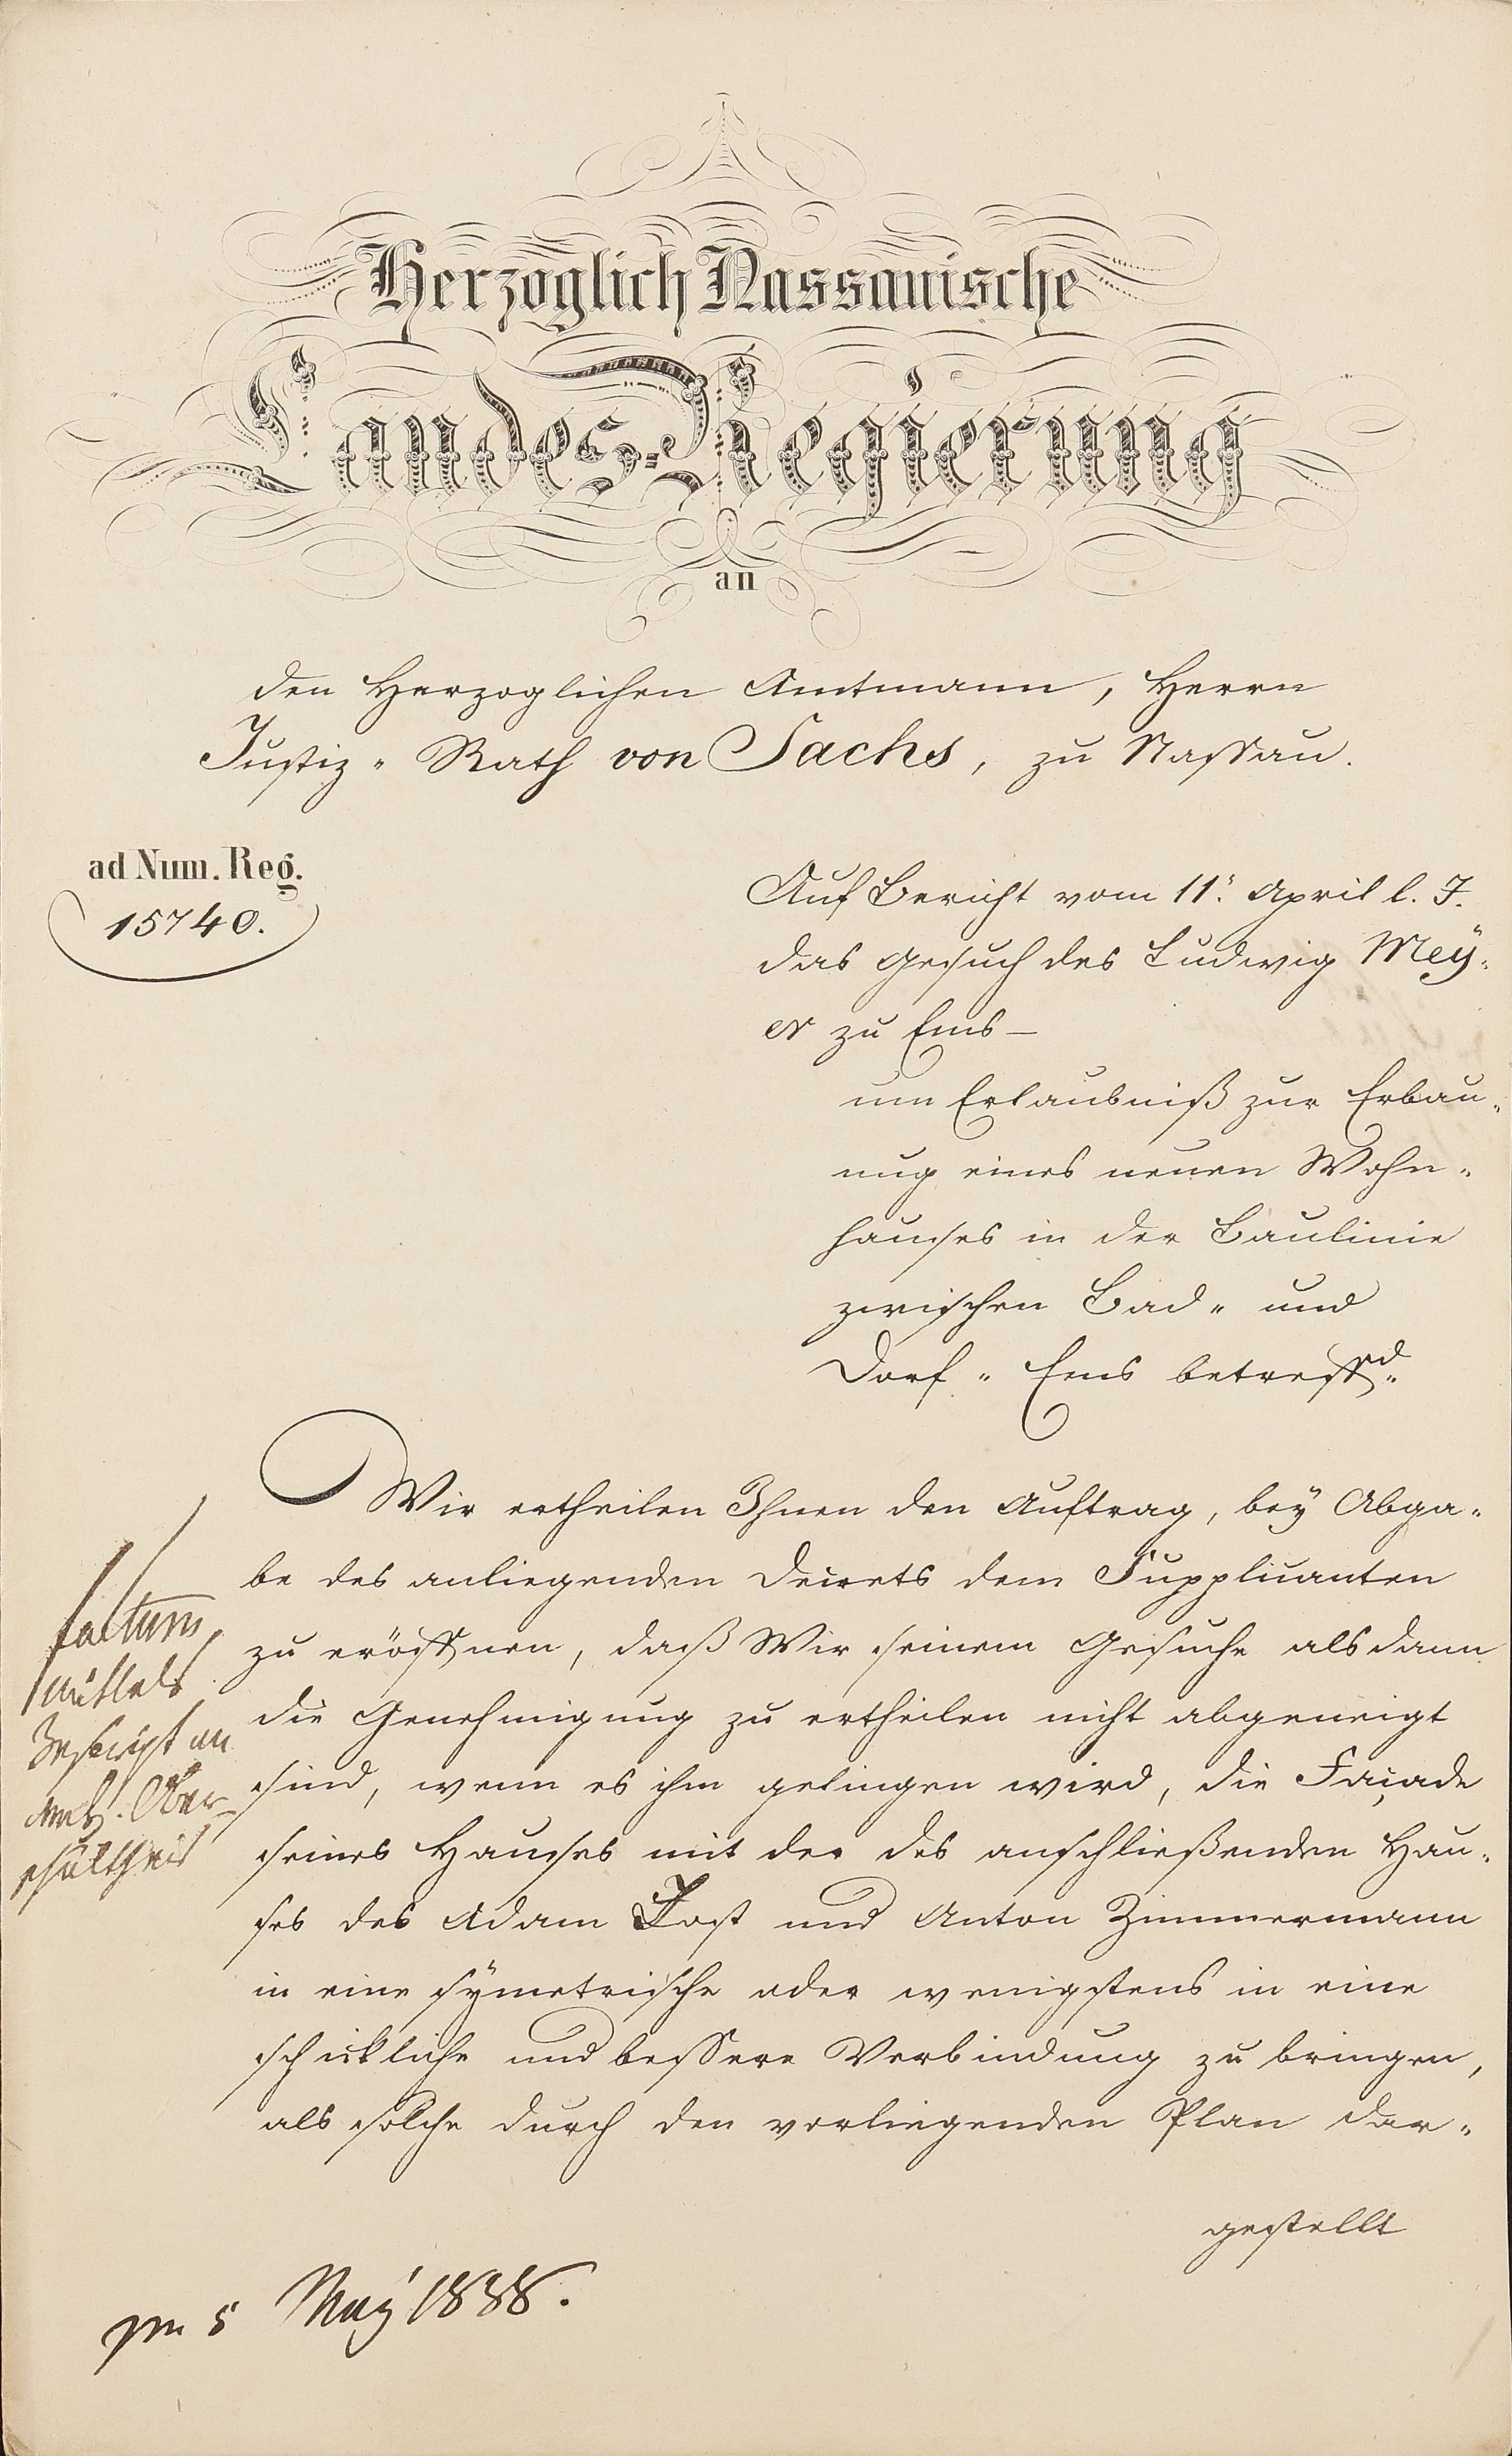 Herzoglich Nassauische
Landes=Regierung
an
den Herzoglichen Amtmann, Herrn
Justiz = Rath von Sachs, zu Nassau.
ad Num. Reg.
15740.
Auf Bericht vom 11. April l. J.
das Gesuch des Ludwig Mey=
er zu Ems –
um Erlaubniß zur Erbau=
ung eines neuen Wohn=
hauses in der Baulinie
zwischen Bad= und
Dorf = Ems betreffd.
Wir ertheilen Ihnen den Auftrag, bey Abga=
be des anliegenden Decrets dem Supplicanten
zu eröffnen, daß Wir seinem Gesuche alsdann
die Genehmigung zu ertheilen nicht abgeneigt
sind, wenn es ihm gelingen wird, die Façade
seines Hauses mit der des anschließenden Hau=
ses des Adam Jost und Anton Zimmermann
in eine symetrische oder wenigstens in eine
schickliche und bessere Verbindung zu bringen,
als solche durch den vorliegenden Plan dar=
gestellt
factum
mittels
Inscript an
Ober-
schultheis
5 May 1838.